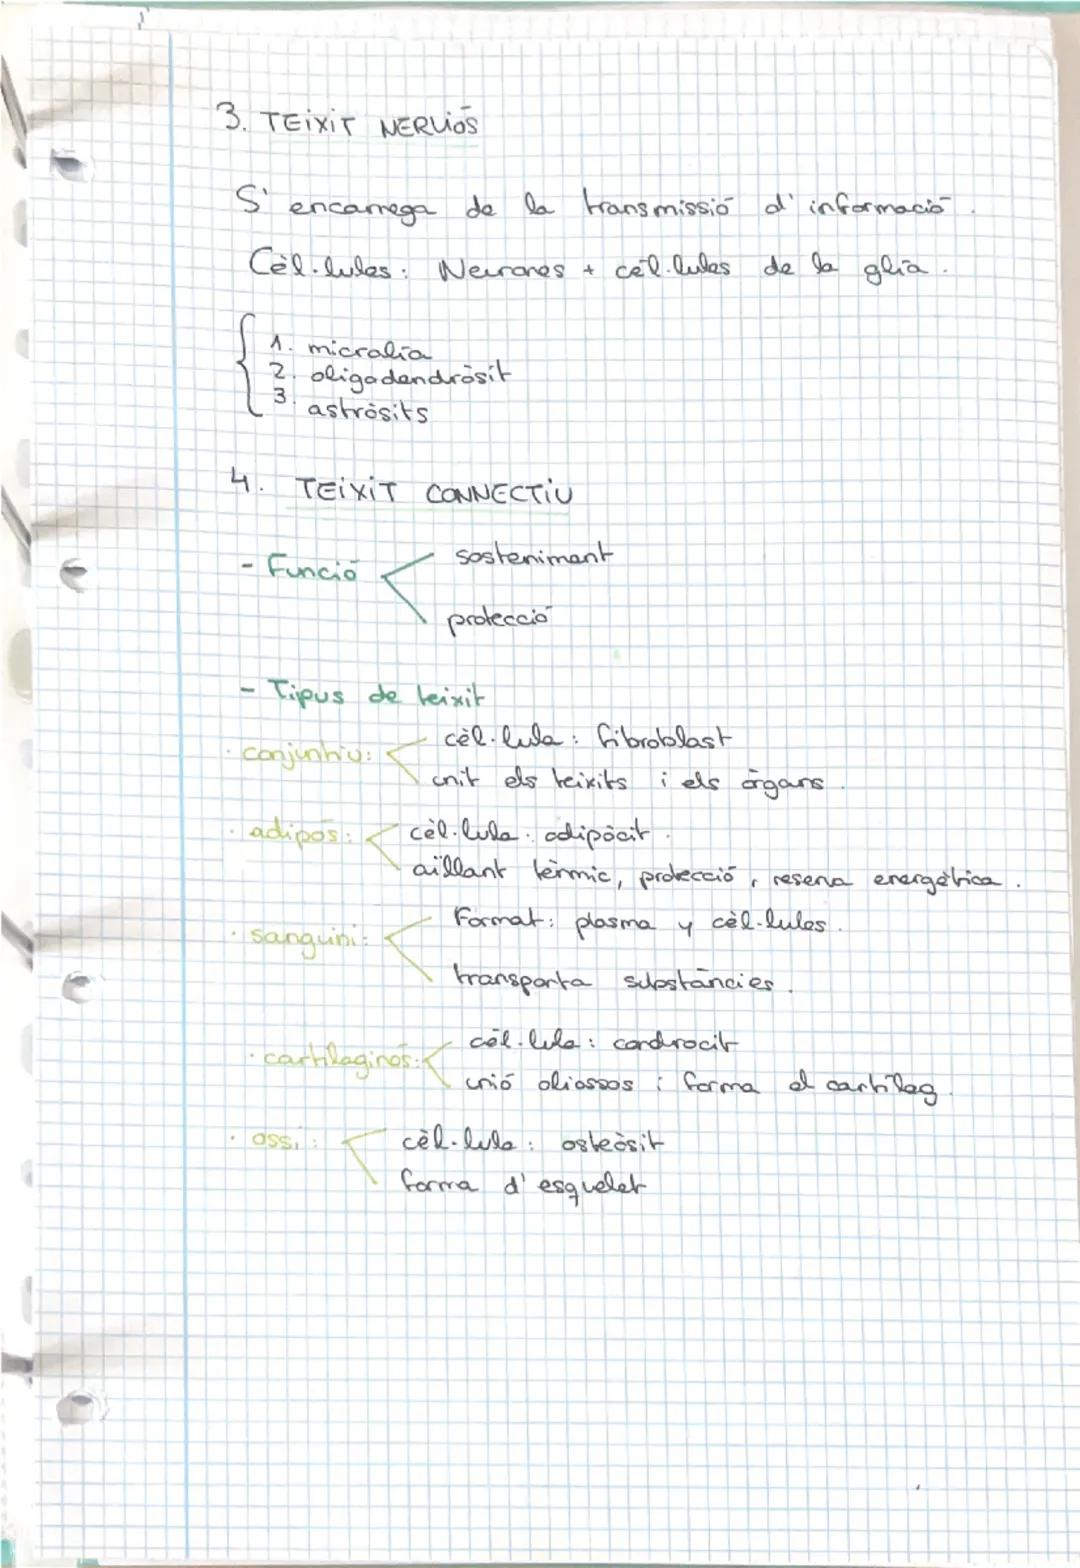 3. TEiXiT NERViÓS
S' encarrega de la transmissió d' informació.
Cèl·lules: Neurones + cèl·lules de la glia.
1. micralia
2. oligodendròsit
3. astròsits
4. TEiXiT CONNECTiU
- Funció
sosteniment
protecció
- Tipus de teixit
· conjuntiu:
cèl·lula: fibroblast
unit els teixits i els òrgans.
· adipós:
cèl·lula: adipòcit.
aïllant tèrmic, protecció, reserva energètica.
· sanguini:
Format: plasma y cèl·lules.
transporta substàncies.
· cartilaginós:
cèl·lula: condrocit
unió oliossos i forma el cartílag.
· ossi:
cèl·lula: osteòsit
forma d' esquelet